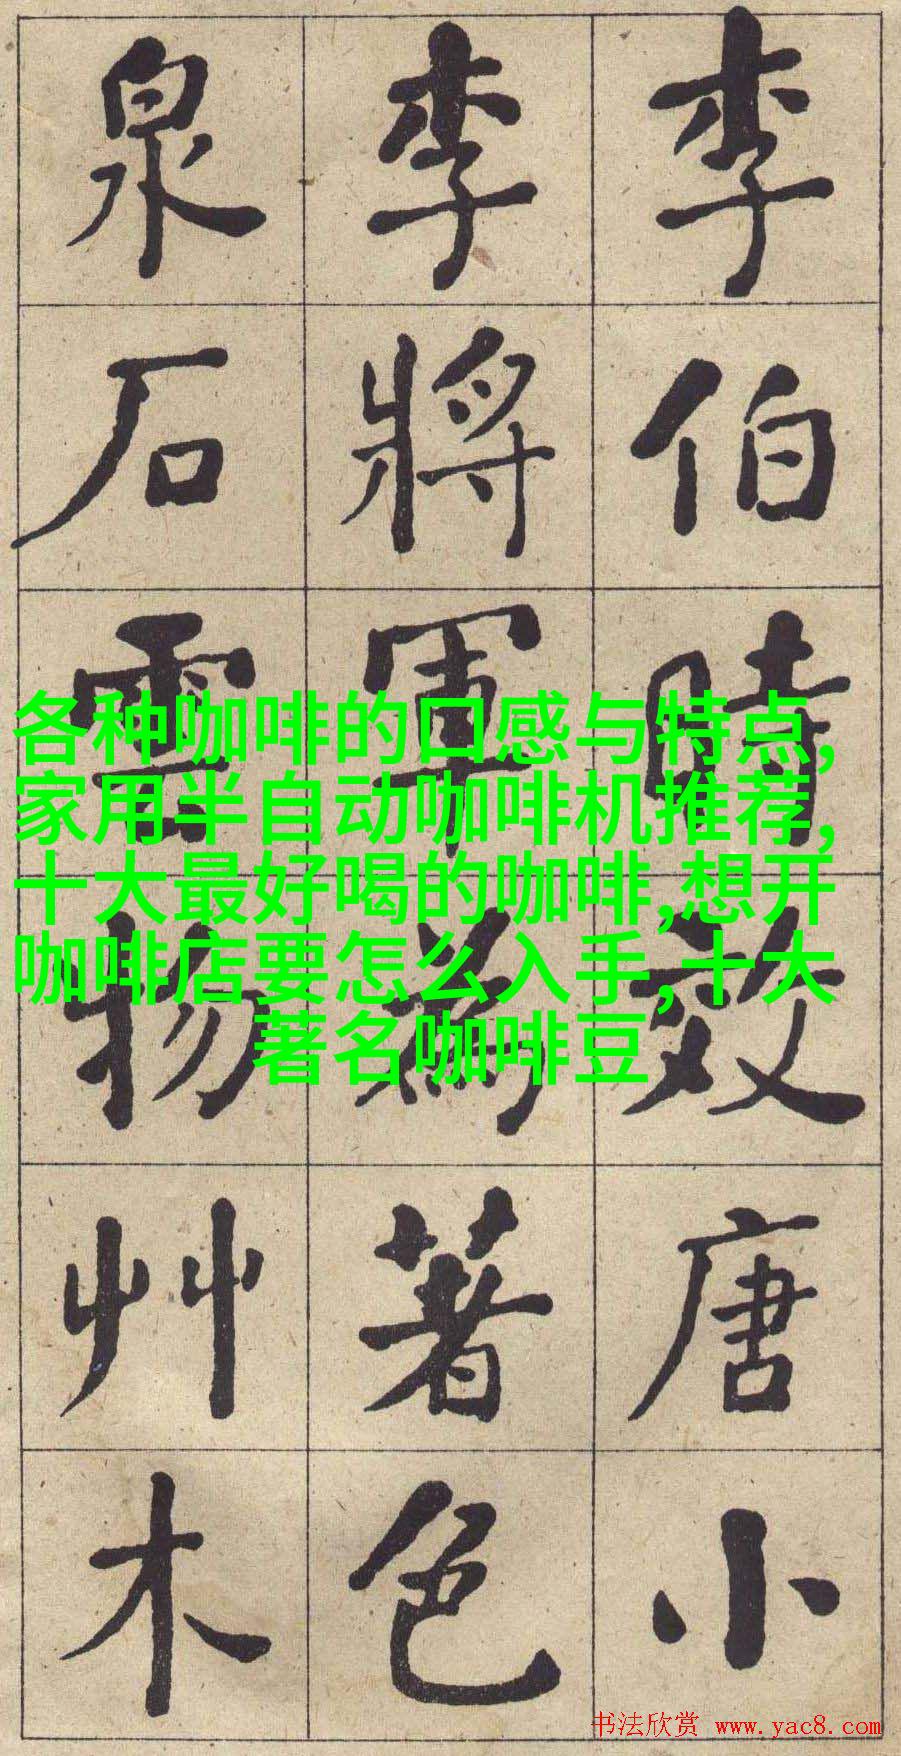 李伯時效唐小
李將軍為著色
泉石雲物艸木
各种咖啡的口感与特点,
家用半自动咖啡机推荐,
十大最好喝的咖啡,想开
咖啡店要怎么入手,十大
著名咖啡豆
书法欣赏 www.yac8.com